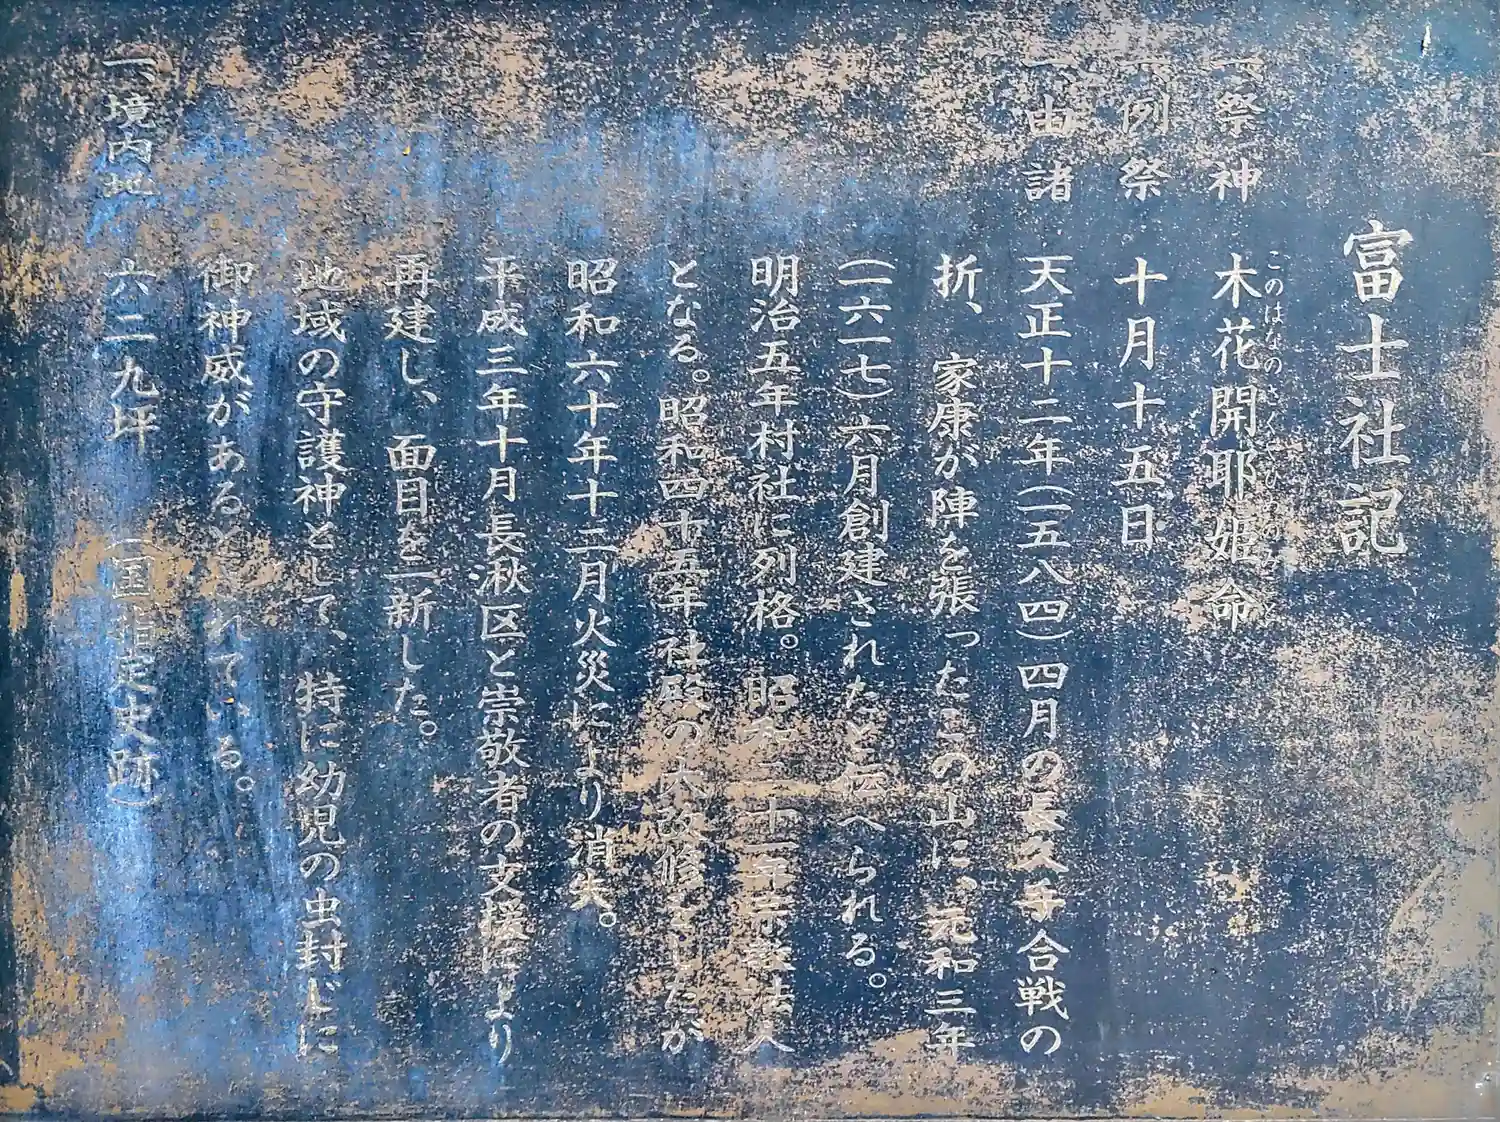 富士社記
一、祭神 木花開耶姫命
このはなのさくやひめのみこと
一、例祭 十月十五日
一、由諸 天正十二年(一五八四)四月の長久手合戦の
折、家康が陣を張ったこの山に、元和三年
(一六一七)六月創建されたと伝へられる。
明治五年村社に列格。昭和二十一年宗教法人
となる。昭和四十五年社殿の大改修をしたが
昭和六十年十二月火災により消失。
平成三年十月長湫区と崇敬者の支援により
再建し、面目を一新した。
地域の守護神として、特に幼児の虫封じに
御神威があるとされている。
一、境内地 六二九坪 (国指定史跡)